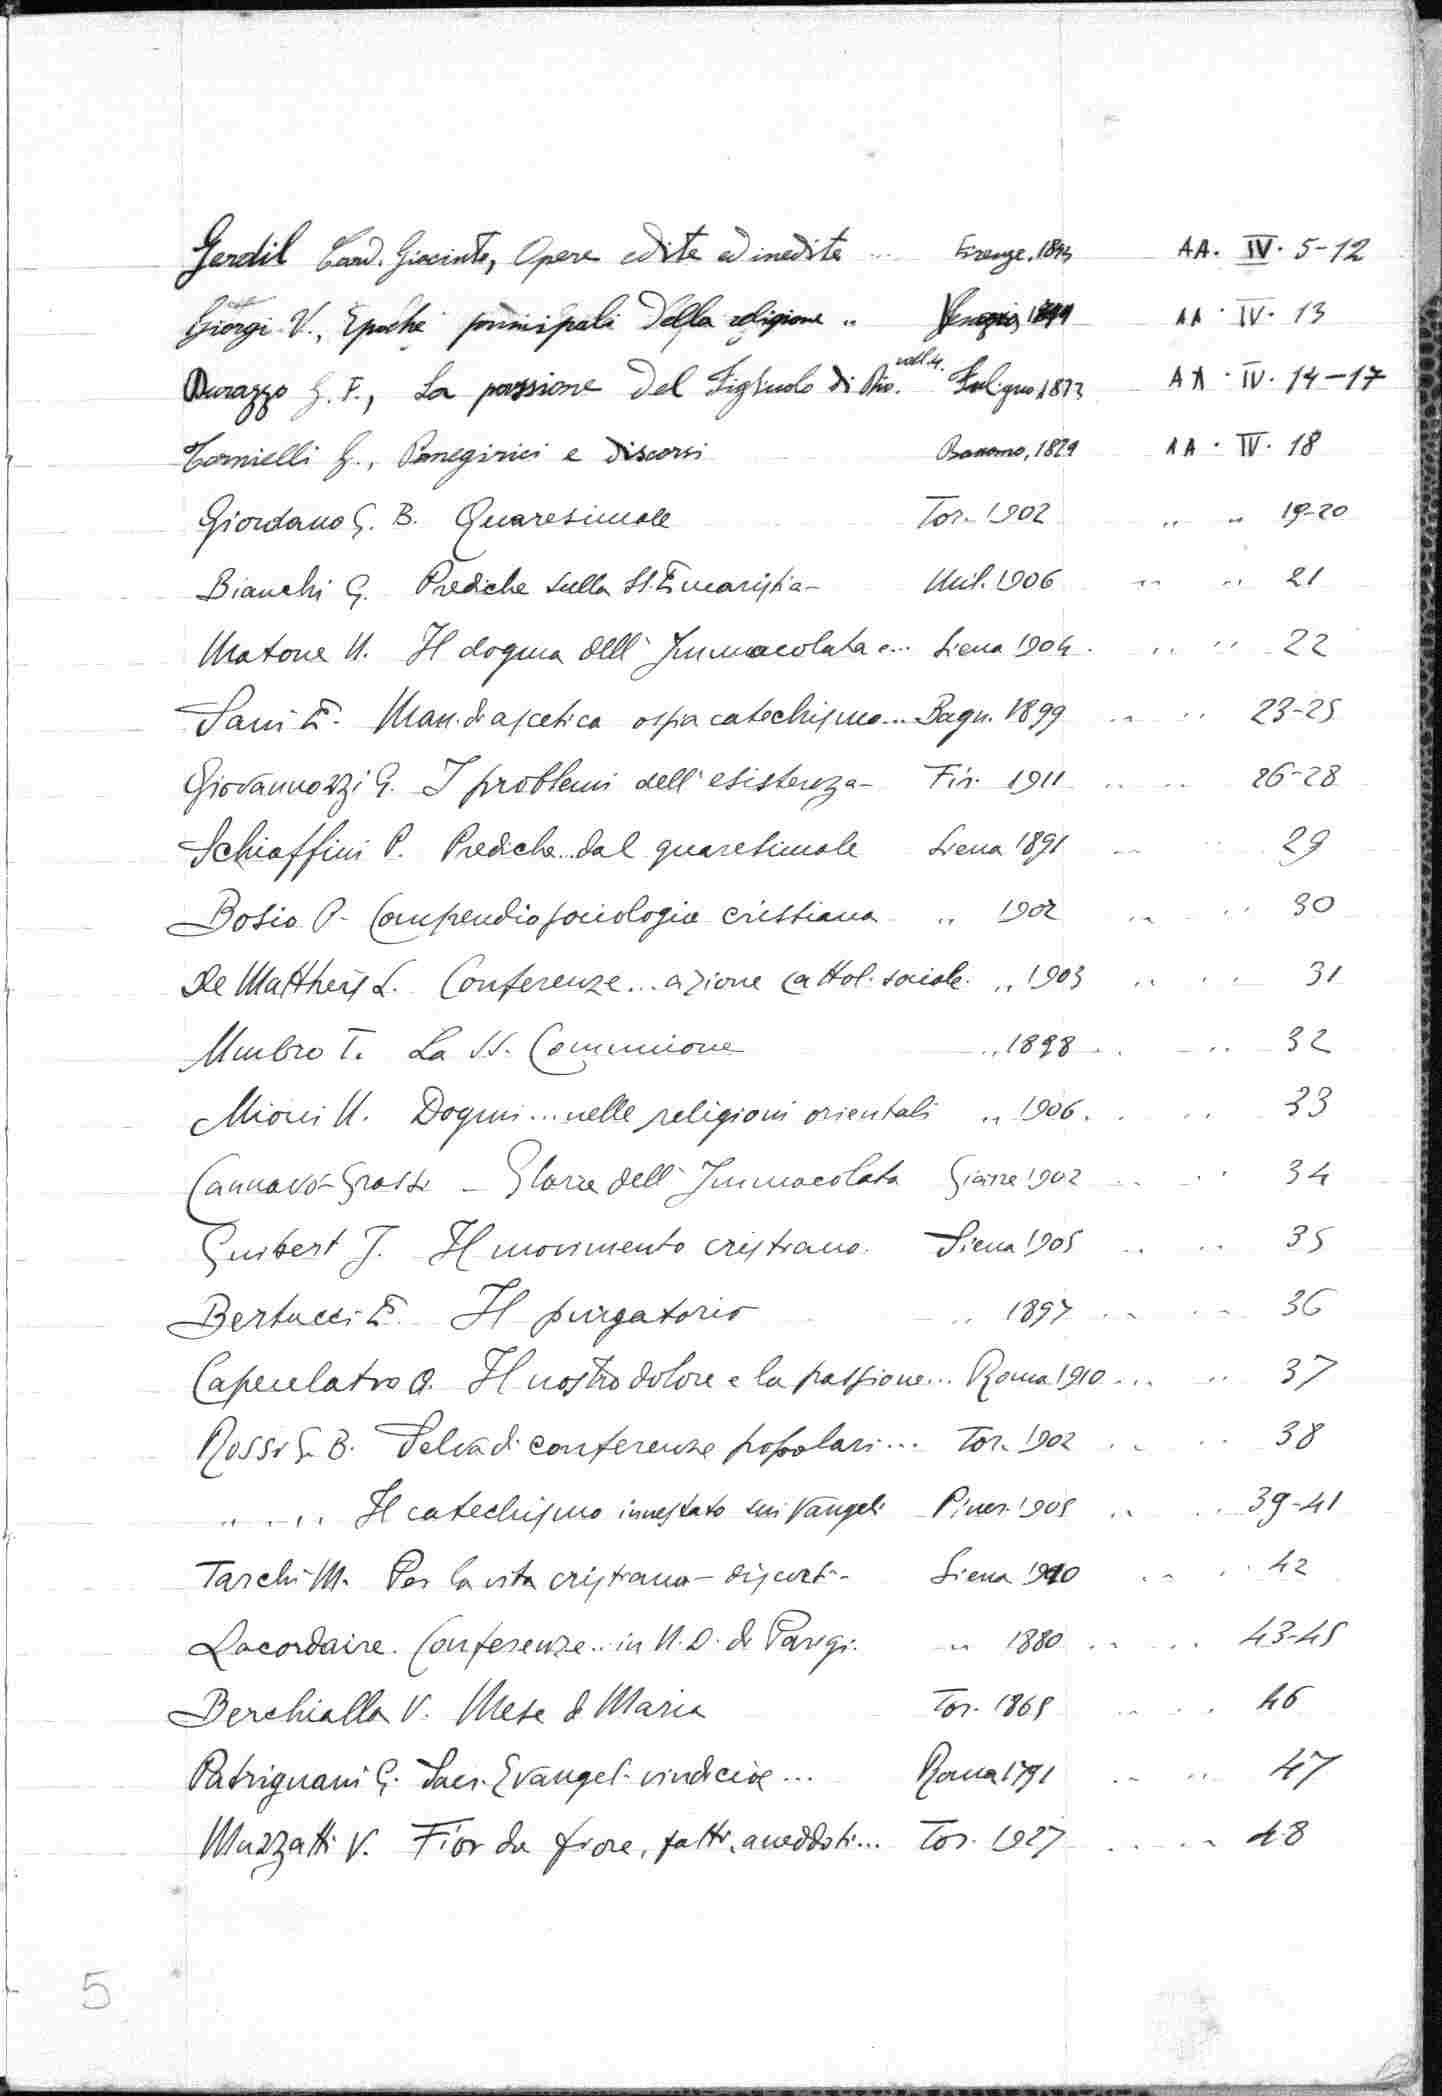 Gerdil Card. Giacinto, Opere edite ed inedite ... Firenze, 1844 AA. IV. 5-12
Giorgi V., Epoche principali della religione .. Venezia, 1799 AA. IV. 13
Durazzo G. F., La passione del Figliuolo di Dio. voll.4. Foligno, 1873 AA. IV. 14-17
Tornielli G., Panegirici e discorsi 1829 AA. IV. 18
Giordano G. B. Quaresimale Tor. 1902 " " 19-20
Bianchi G. Prediche sulla SS. Eucaristia- Mil. 1906 " " 21
Matone U. Il dogma dell'Immacolata e... Siena 1904. " " 22
Sani E. Man. di ascetica ossia catechismo... Bagn. 1899 " " 23-25
Giovannozzi G. I problemi dell'esistenza- Fir. 1911 " " 26-28
Schiaffini P. Prediche... dal quaresimale Siena 1891 " " 29
Bosio P. Compendio sociologia cristiana " 1902 " " 30
De Mattheis L. Conferenze... azione cattol. sociale. " 1903 " " 31
Umbro T. La SS. Comunione " 1898 " " 32
Mioni U. Dogmi... nelle religioni orientali " 1906. " " 33
Cannavò-Grassi - Glorie dell'Immacolata Giarre 1902 " " 34
Guibert J. Il movimento cristiano. Siena 1905 " " 35
Bertucci E. Il purgatorio " 1897 " " 36
Capecelatro A. Il nostro dolore e la passione... Roma 1910 " " 37
Rossi G. B. Selva di conferenze popolari... Tor. 1902 " " 38
" " " Il catechismo innestato sui Vangeli Piner. 1905 " " 39-41
Tarchi M. Per la vita cristiana - discorsi- Siena 1910 " " 42
Lacordaire. Conferenze.. in N.D. di Parigi. " 1880 " " 43-45
Berchialla V. Mese di Maria Tor. 1865 " " 46
Patrignani G. Sacr. Evangel. vindiciae... Roma 1791 " " 47
Muzzatti V. Fior da fiore, fatti, aneddoti... Tor. 1927 " " 48
5